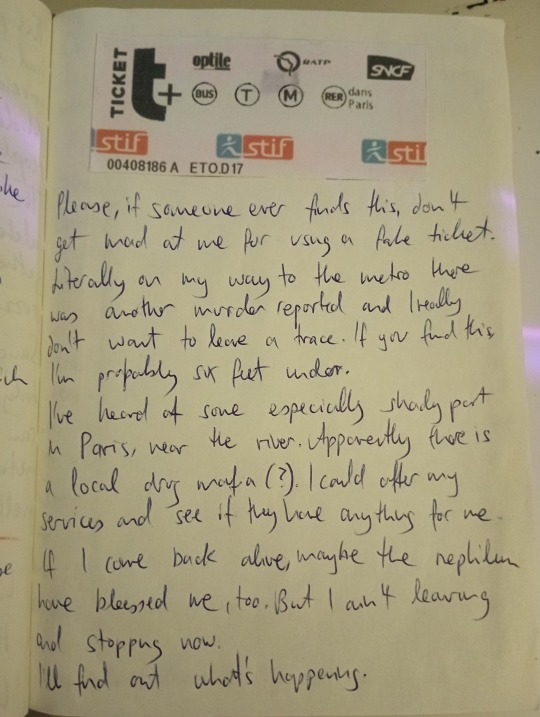 TICKET t+
optile RATP SNCF
BUS T M RER dans Paris
stif stif sti
00408186 A ETO.D17
Please, if someone ever finds this, don't
get mad at me for using a fake ticket.
Literally on my way to the metro there
was another murder reported and I really
don't want to leave a trace. If you find this,
I'm propably six feet under.
I've heard of some especially shady part
in Paris, near the river. Apparently there is
a local drug mafia (?). I could offer my
services and see if they have anything for me.
If I come back alive, maybe the nephilim
have blessed me, too. But I ain't leaving
and stopping now.
I'll find out what's happening.